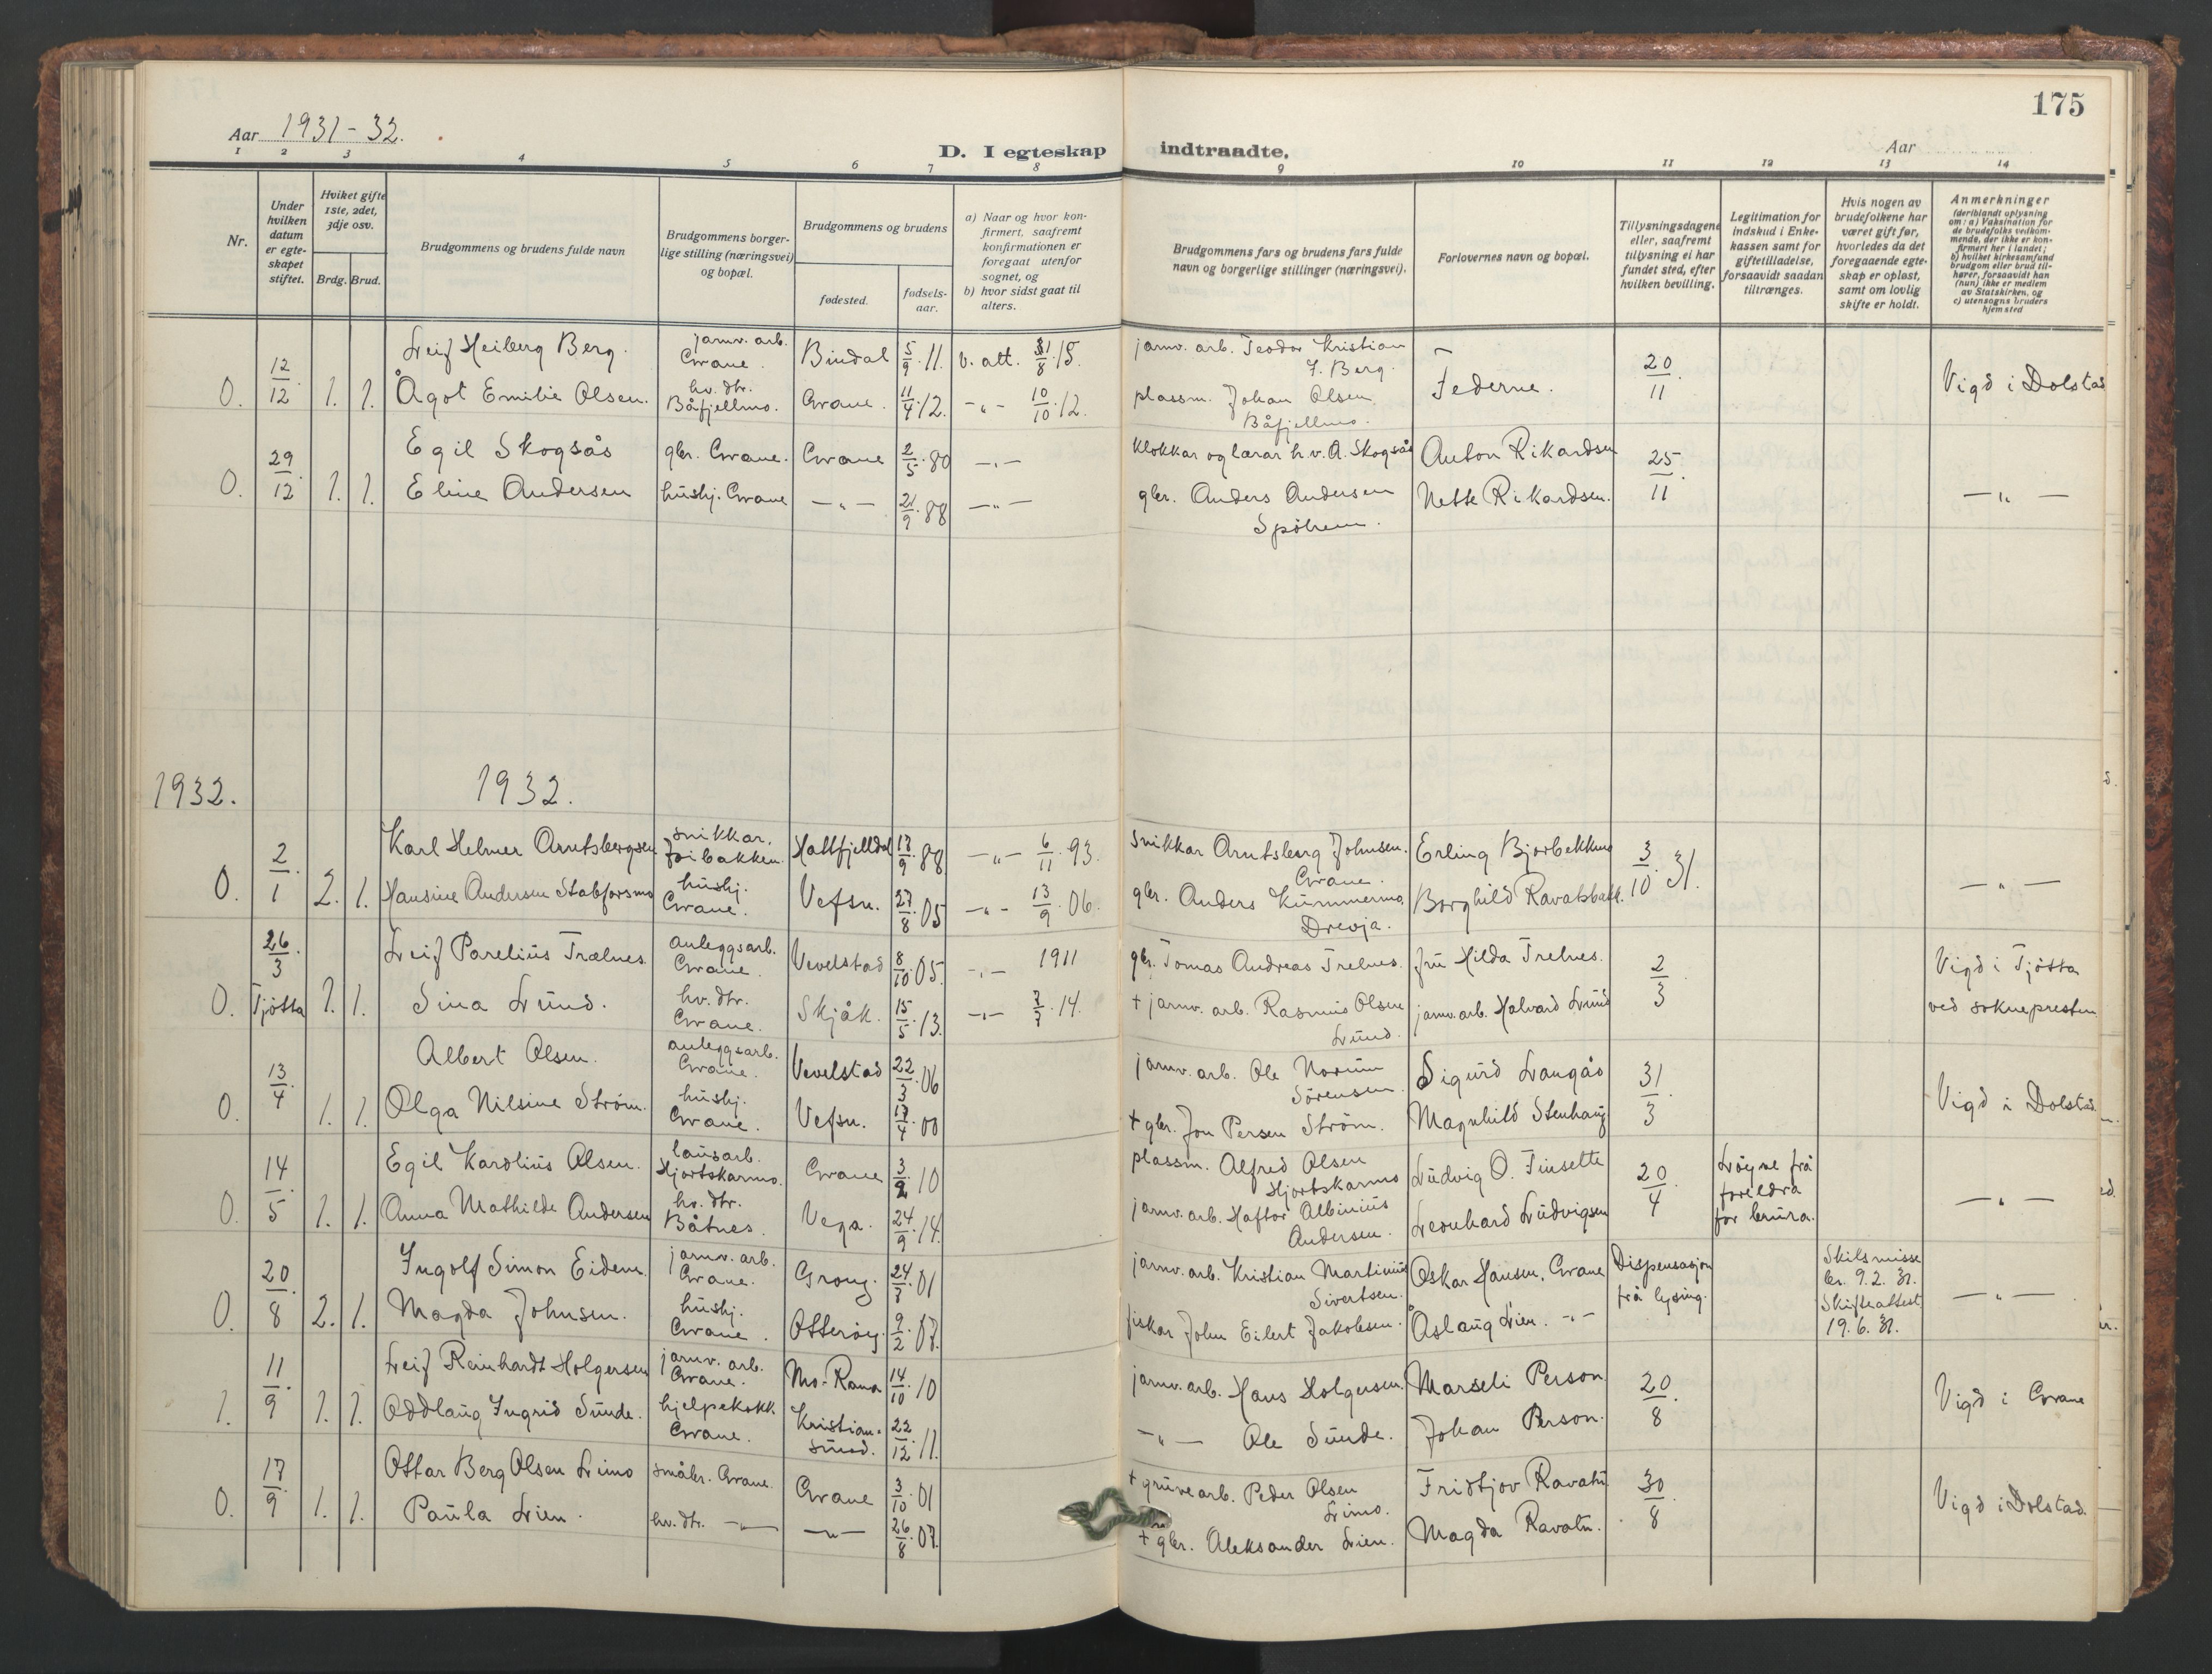 175
Aar 1931-32.
D. I egteskap indtraadte.
Aar
1 2 3 4 5 6 7 8 9 10 11 12 13 14
Nr.
Under hvilken datum er egteskapet stiftet.
Hvilket gifte 1ste, 2det, 3dje osv.
Brdg. Brud.
Brudgommens og brudens fulde navn
Brudgommens borgerlige stilling (næringsvei) og bopæl.
Brudgommens og brudens
fødested.
fødselsaar.
a) Naar og hvor konfirmert, saafremt konfirmationen er foregaat utenfor sognet, og
b) hvor sidst gaat til alters.
Brudgommens fars og brudens fars fulde navn og borgerlige stillinger (næringsvei).
Forlovernes navn og bopæl.
Tillysningsdagene eller, saafremt tillysning ei har fundet sted, efter hvilken bevilling.
Legitimation for indskud i Enkekassen samt for giftetilladelse, forsaavidt saadan tiltrænges.
Hvis nogen av brudefolkene har været gift før, hvorledes da det foregaaende egteskap er opløst, samt om lovlig skifte er holdt.
Anmerkninger
(deriblandt oplysning om: a) Vaksination for de brudefolks vedkommende, der ikke er konfirmert her i landet; b) hvilket kirkesamfund brudgom eller brud tilhører, forsaavidt han (hun) ikke er medlem av Statskirken, og c) utensogns bruders hjemsted
0. 12/12. 1. 1.
Leif Heiberg Berg. jarnv. arb. Grane. Bindal 5/9.11. v. att. 31/8.15. jarnv. arb. Teodor Kristian J. Berg. — 20/11. Vigd i Dolstad
Ågot Emilie Olsen. hv. dtr. Båfjellmo. Grane. 11/4.12. -"- 10/10.12. plassm. Johan Olsen Båfjellmo. Federne.
0. 29/12. 1. 1.
Egil Skogsås gbr. Grane. Grane 2/5.80 -"- Klokkar og lærar h.v. A. Skogsås Anton Rikardsen 25/11. -"-
Eline Andersen hushj. Grane -"- 21/9.88 -"- gbr. Anders Andersen Nette Rikardsen.
1932. 1932.
0. 2/1. 2. 1.
Karl Helmer Arntsbergsen snikkar. Hattfjelldal 17/9.88 -"- 6/11.93. Snikkar Arntsberg Johnsen. Grane. Erling Bjorbekkmo 3/10.31. -"-
Hansine Andersen Stabforsmo hushj. Grane. Vefsn. 27/8.05 -"- 13/9.06. gbr. Anders Kummermo, Drevja. Borghild Ravatsbakk.
0. 26/3 Tjötta 1. 1.
Leif Parelius Trælnes. anleggsarb. Grane. Vevelstad 8/10.05. -"- 1911 gbr. Tomas Andreas Trelnes. fru Hilda Trelnes. 2/3. Vigd i Tjötta
Sina Lund. hv. dtr. Grane. Skjåk. 15/5.13. -"- 7/7.14. + jarnv. arb. Rasmus Olsen Lund. jarnv. arb. Halvard Lund ved sokneprestn
0. 13/4. 1. 1.
Albert Olsen. anleggsarb. Grane. Vevelstad 22/3.06 jarnv. arb. Ole Norum Sörensen. Sigurd Langås 31/3. Vigd i Dolstad.
Olga Nilsine Ström. hushj. Grane. Vefsn. 17/4.00 + gbr. Jon Persen Ström. Magnhild Stenhaug
0. 14/5. 1. 1.
Egil Karolius Olsen. lausarb. Hjortskarmo. Grane 3/2.10 plassm. Alfred Olsen Hjortskarmo Ludvig O. Finsette 20/4. Löyve frå foreldra for brura. -"-
Anna Mathilde Andersen hv. dtr. Båtnes. Vega. 24/9.14. jarnv. arb. Haftor Albinius Andersen. Leonhard Ludvigsen
0. 20/8 2. 1.
Ingolf Simon Eidem. jarnv. arb. Grane. Grong. 24/7.01 jarnv. arb. Kristian Martinius Sivertsen. Oskar Hansen, Grane Dispensasjon frå lysing. Skilsmisse br. 9.2.31. Skifteattest 19.6.31. -"-
Magda Johnsen. hushj. Grane. Otteröy. 9/2.07. fiskar John Eilert Jakobsen. Åslaug Lien. -"-
1. 11/9. 1. 1.
Leif Reinhardt Holgersen jarnv. arb. Grane. Mo-Rana 14/10.10 jarnv. arb. Hans Holgersen. Marseli Person. 20/8. Vigd i Grane
Oddlaug Ingrid Sunde. hjelpekokk. Grane. Kristiansund. 22/12.11. -"- Ole Sunde. Johan Person.
0. 17/9. 1. 1.
Ottar Berg Olsen Limo småbr. Grane. Grane 3/10.01 + gruvearb. Peder Olsen Limo. Fridtjov Ravatn 30/8. Vigd i Dolstad.
Paula Lien. hv. dtr. -"- -"- 26/8.07. + gbr. Aleksander Lien. Magda Ravatn.